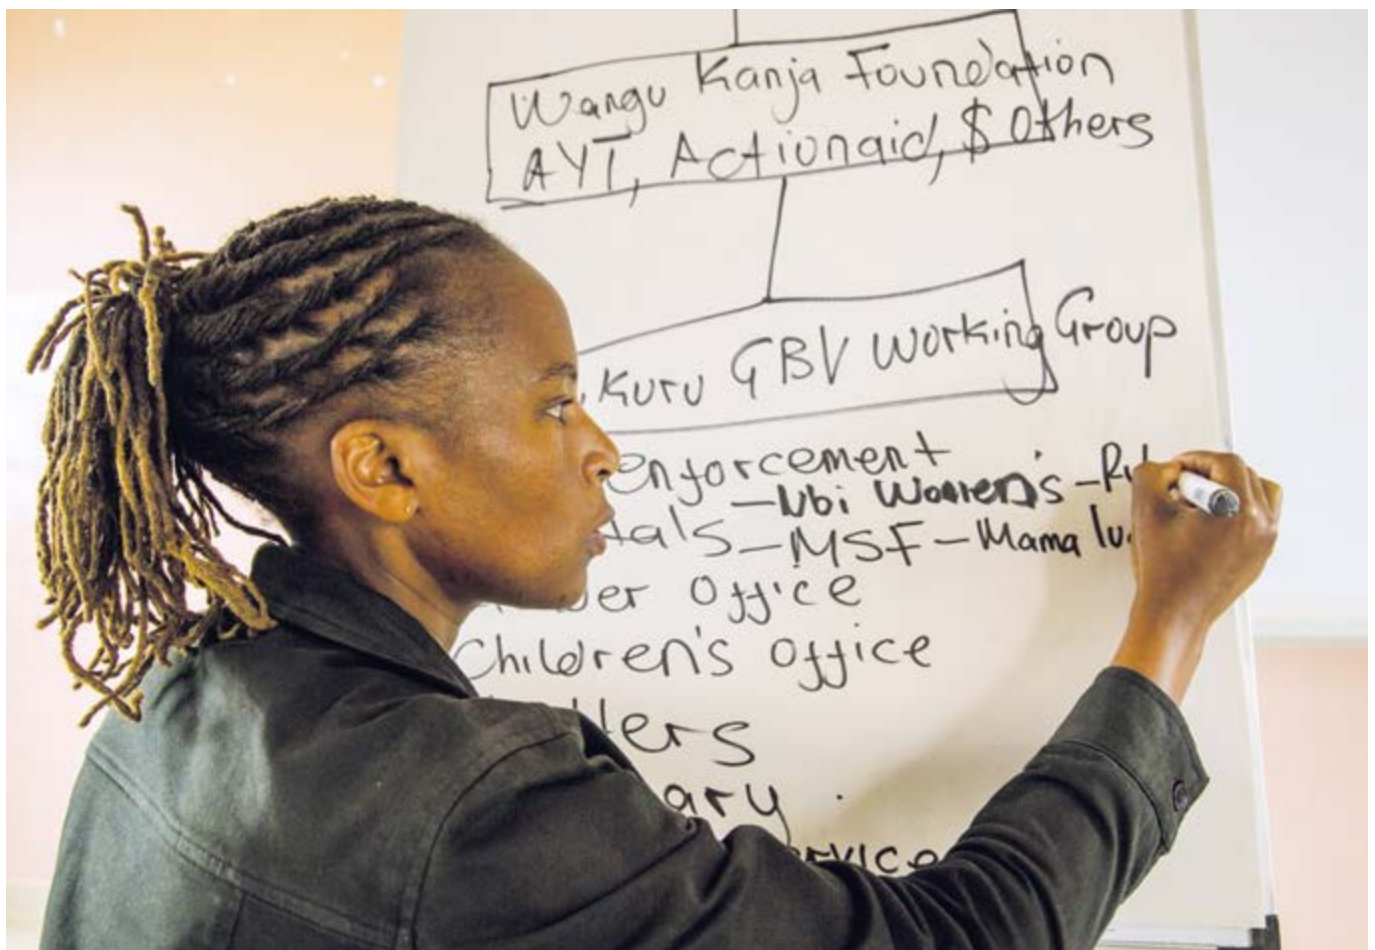 Wangu Kanja Foundation
AYT, Actionaid, $ Others
Kuru GBV Working Group
enforcement
-Nbi Women's -Ru
tals-MSF-Mama lu
er Office
Children's Office
ers
ary
ervice